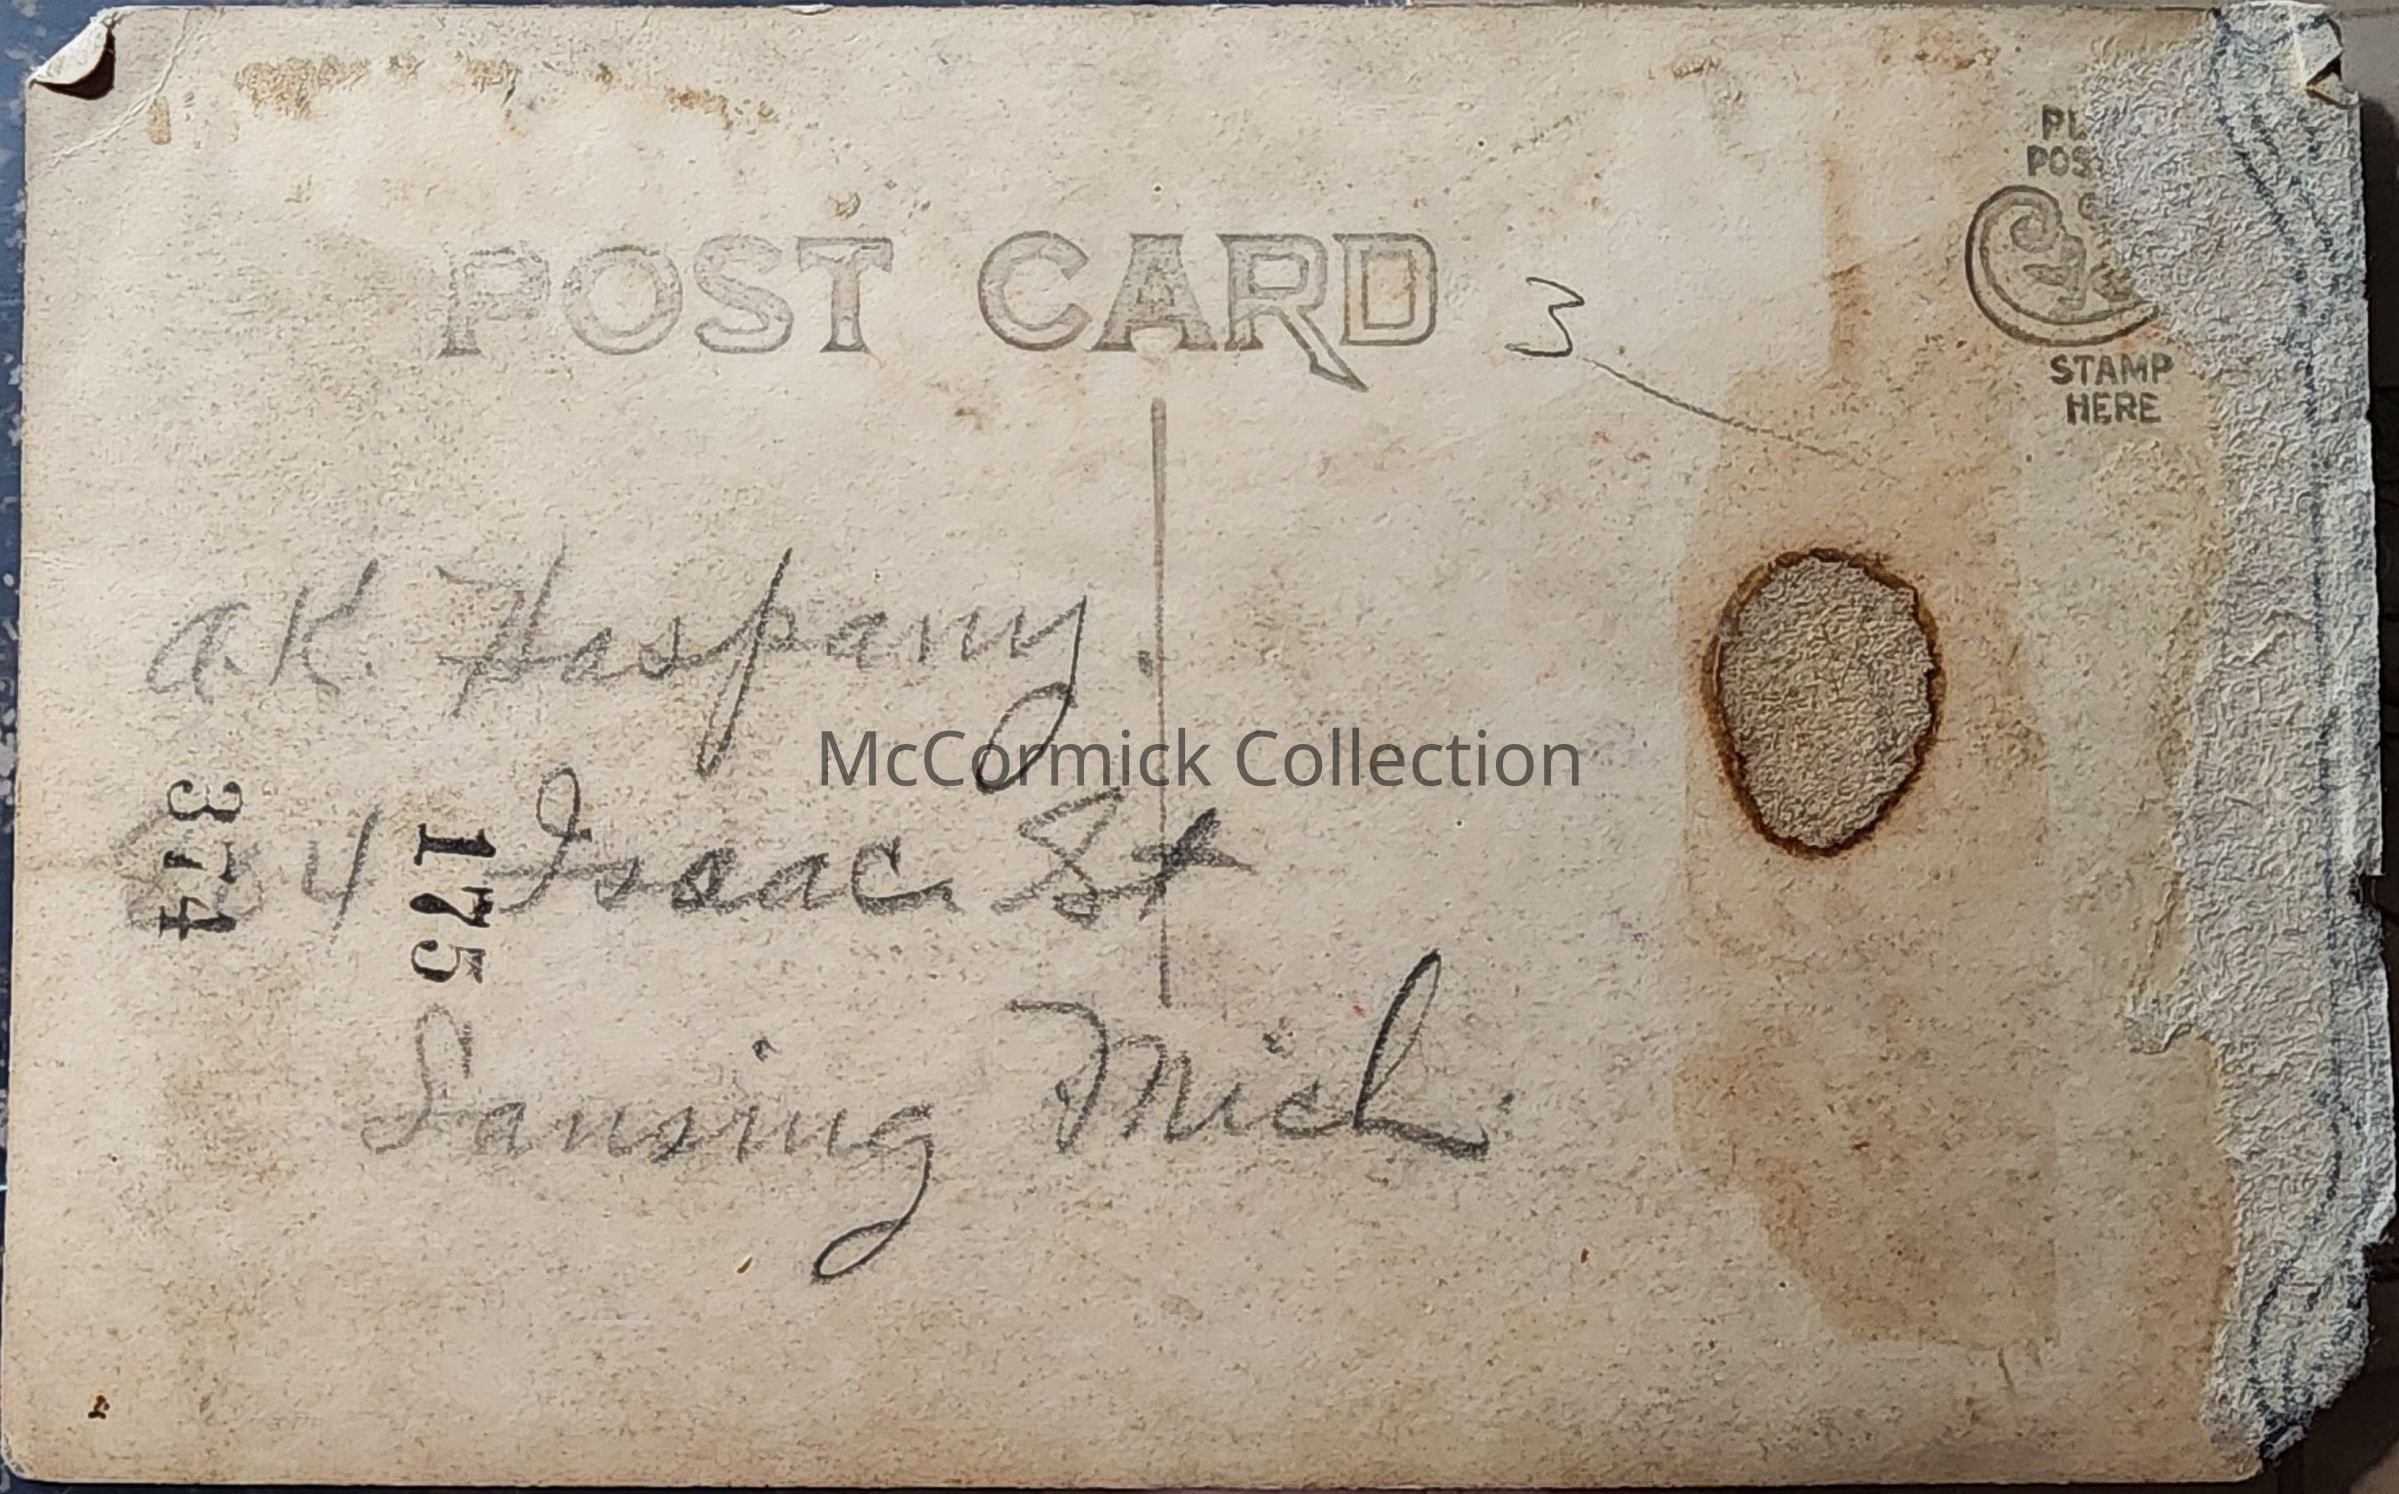 PL
POS
POST CARD 3
STAMP
HERE
A. K. Haspany.
McCormick Collection
374
4 Isaac St
175
Lansing Mich.